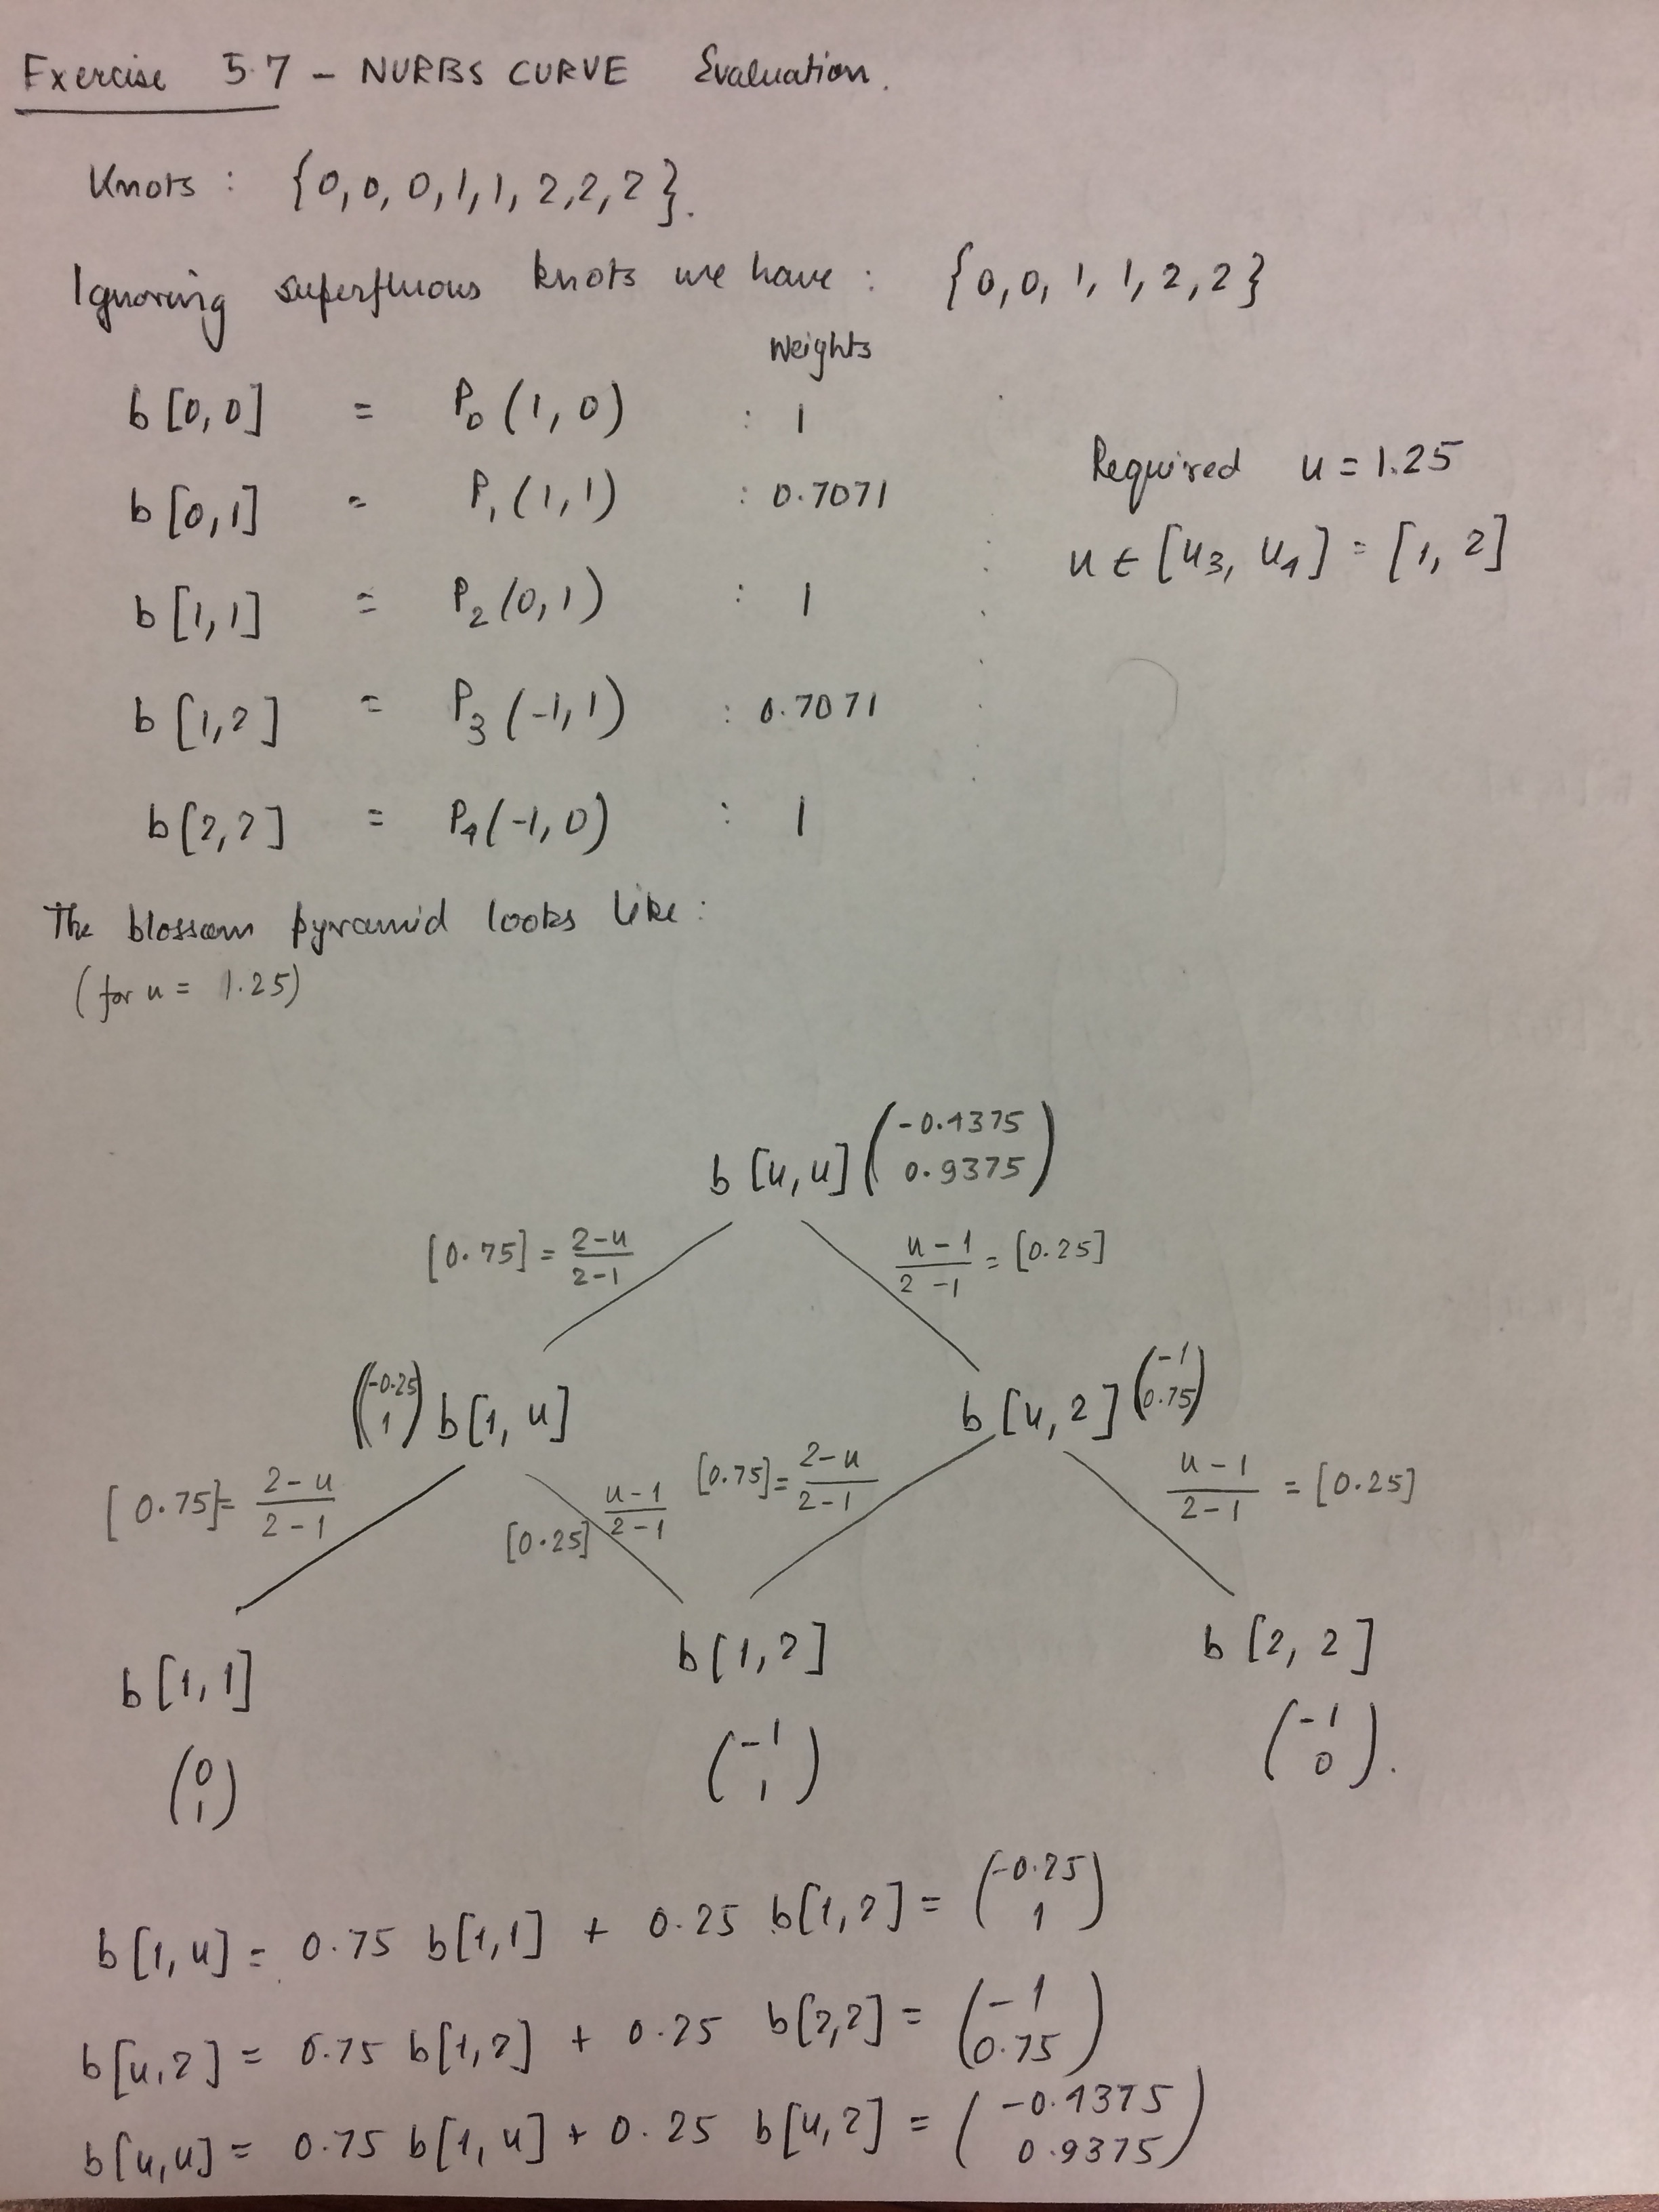 Exercise 5.7 - NURBS CURVE Evaluation.
Knots : {0, 0, 0, 1, 1, 2, 2, 2}.
Ignoring superfluous knots we have : {0, 0, 1, 1, 2, 2}
Weights
b[0,0] = P₀(1,0) : 1
b[0,1] = P₁(1,1) : 0.7071
b[1,1] = P₂(0,1) : 1
b[1,2] = P₃(-1,1) : 0.7071
b[2,2] = P₄(-1,0) : 1
Required u = 1.25
u ∈ [u₃, u₄] = [1, 2]
The blossom pyramid looks like :
(for u = 1.25)
b[u,u] (-0.4375
0.9375)
[0.75] = (2-u)/(2-1) (u-1)/(2-1) = [0.25]
(-0.25
1) b[1,u] b[u,2] (-1
0.75)
[0.75] = (2-u)/(2-1) [0.25] (u-1)/(2-1) [0.75] = (2-u)/(2-1) (u-1)/(2-1) = [0.25]
b[1,1] b[1,2] b[2,2]
(0
1) (-1
1) (-1
0).
b[1,u] = 0.75 b[1,1] + 0.25 b[1,2] = (-0.25
1)
b[u,2] = 0.75 b[1,2] + 0.25 b[2,2] = (-1
0.75)
b[u,u] = 0.75 b[1,u] + 0.25 b[u,2] = (-0.4375
0.9375)